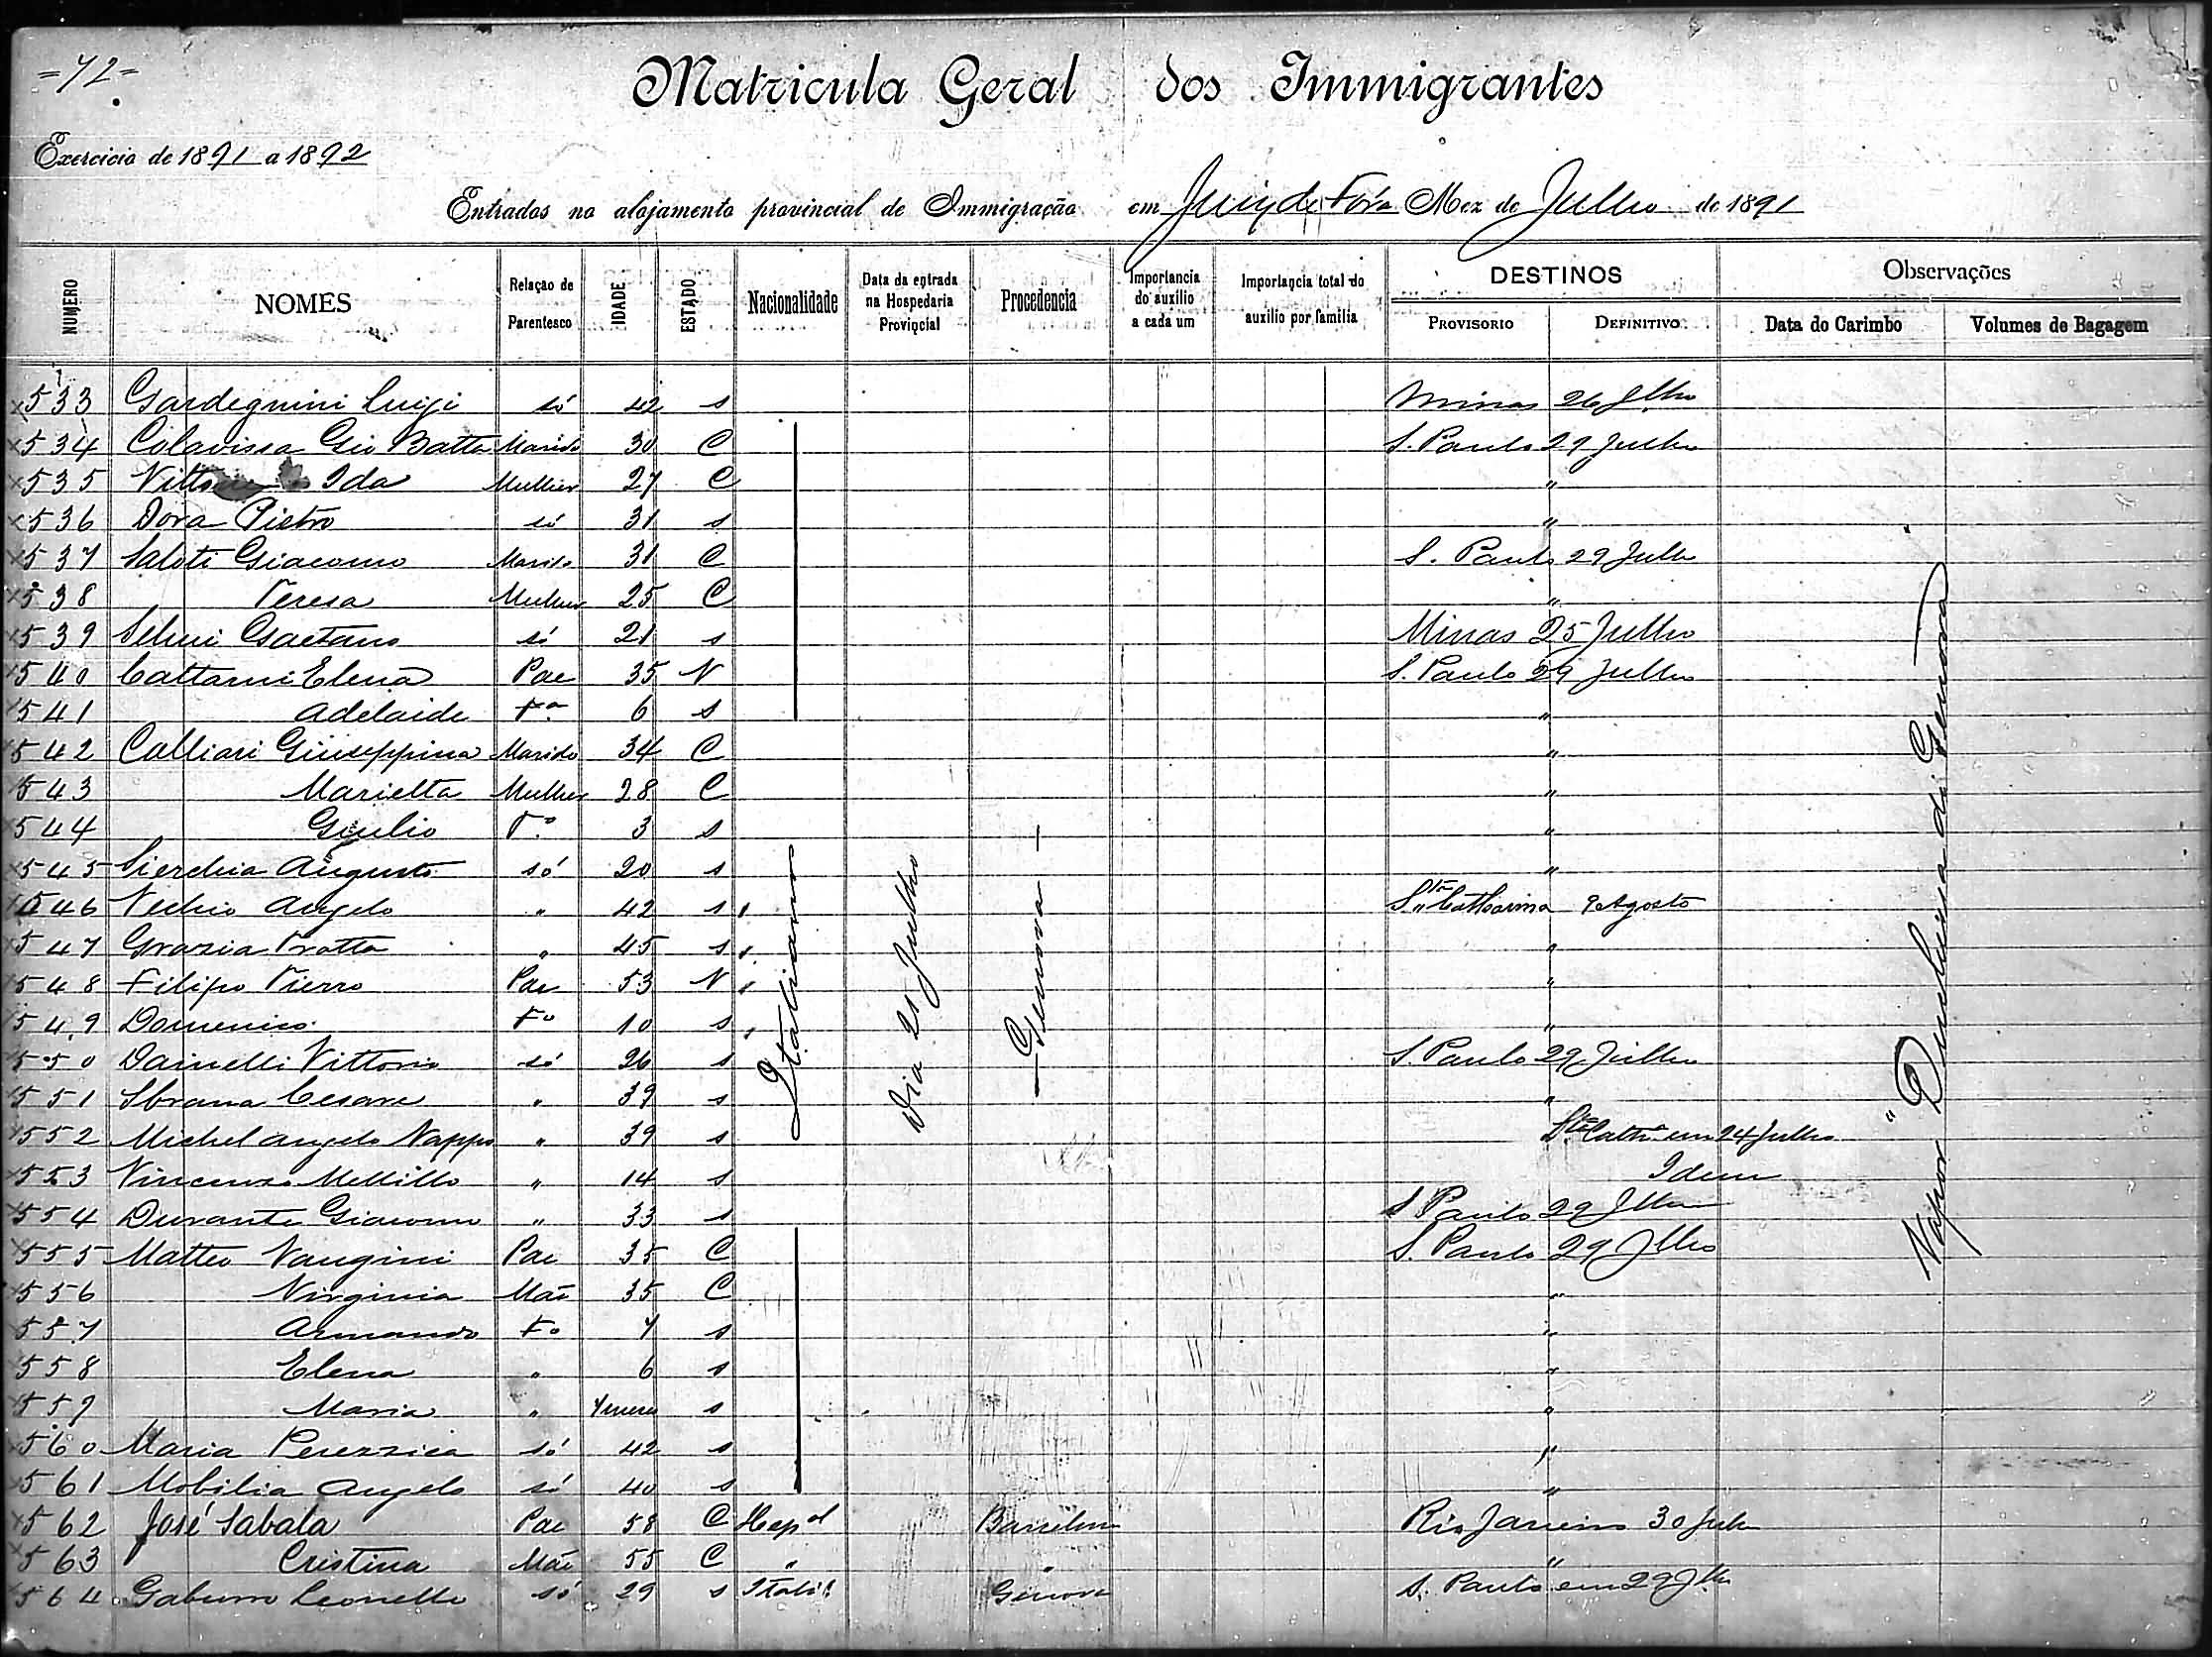 =72=
Matricula Geral dos Immigrantes
Exercicio de 1891 a 1892
Entrados no alojamento provincial de Immigração em Juiz de Fóra Mez de Julho de 1891
NUMERO NOMES Relação de Parentesco IDADE ESTADO Nacionalidade Data da entrada na Hospedaria Provincial Procedencia Importancia do auxilio a cada um Importancia total do auxilio por familia DESTINOS PROVISORIO DEFINITIVO Observações Data do Carimbo Volumes de Bagagem
533 Gardegnini Luigi só 42 s Minas 26 Jlho
534 Colavissa Gio Batta Marido 30 C S. Paulo 29 Julho
535 Ida Mulher 27 C "
536 Dora Pietro só 31 s "
537 Saloti Giacomo Marido 31 C S. Paulo 29 Julh
538 Teresa Mulher 25 C "
539 Gaetano só 21 s Minas 25 Julho
540 Elena Pae 35 V S. Paulo 29 Julho
541 Adelaide Fa 6 s "
542 Calliari Giuseppina Marido 34 C "
543 Marietta Mulher 28 C "
544 Giulio Fo 3 s "
545 Augusto só 20 s "
546 Vechio Angelo " 42 s Sta Catharina 9 Agosto
547 Grazia Tratta " 45 s "
548 Filipo Vierro Pae 53 V "
549 Domenico Fo 10 s "
550 Dainelli Vittorio só 26 s S. Paulo 29 Julho
551 Sbrana Cesare " 39 s "
552 Michel angelo Nappo " 39 s Sta Catha em 24 Julho
553 Vincenzo Mellillo " 14 s Idem
554 Durante Giacomo " 33 s S Paulo 29 Jlho
555 Matteo Vangini Pae 35 C S. Paulo 29 Jlho
556 Virginia Mãe 35 C "
557 Armando Fo 7 s "
558 Elena " 6 s "
559 Maria " 7 mezes s "
560 Maria Perezzica só 42 s "
561 Mobilia Angelo só 40 s "
562 José Sabala Pae 58 C Hespl Barcelona Rio Janeiro 30 Julh
563 Cristina Mãe 55 C " " "
564 Gaburro Leonello só 29 s Itali Genova S. Paulo em 29 Jlho
Italiano
Dia 21 Julho
— Genova —
Vapor "Duchessa di Genova